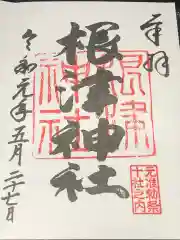 奉拝
根津神社
令和元年五月二十七日
根津神社
元准勅祭
十社之内